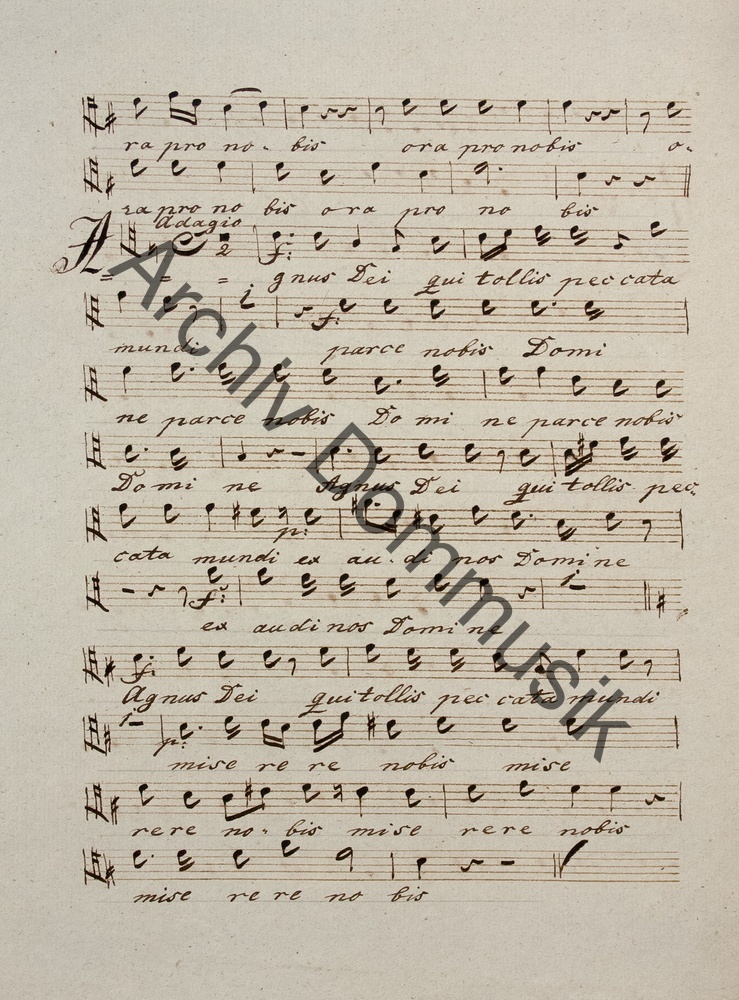 ra pro no - bis ora pro nobis o-
ra pro no bis ora pro no bis
Adagio
2
f:
A = = =: gnus Dei qui tollis pec cata
i
f:
mundi parce nobis Domi
ne parce nobis Do mi ne parce nobis
Do mi ne Agnus Dei qui tollis pec-
p:
cata mundi ex au - di nos Domi ne
f:
1
ex audi nos Domi ne
f:
Agnus Dei qui tollis pec cata mundi
1
p:
mise re re nobis mise
re re no - bis mise re re nobis
mise re re no bis
Archiv Dommusik